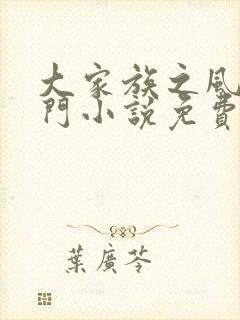 大家族之風
門小說免費
葉廣芩